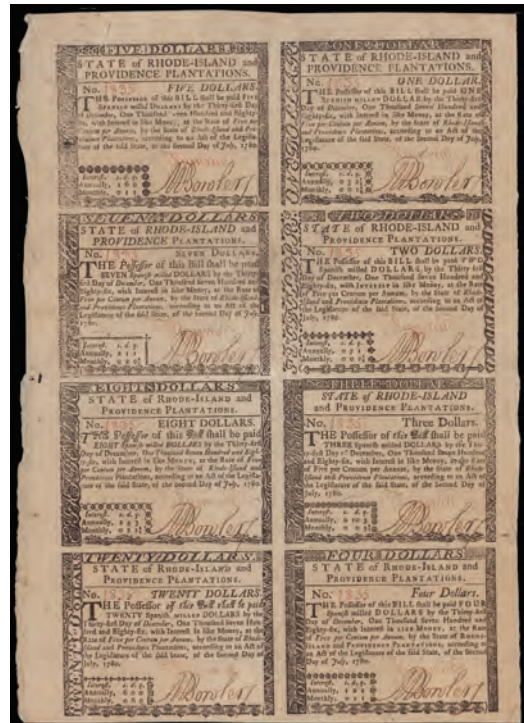 FIVE DOLLARS.
STATE of RHODE-ISLAND and
PROVIDENCE PLANTATIONS.
No. 1835 FIVE DOLLARS.
THE Possessor of this BILL shall be paid FIVE
Spanish milled DOLLARS by the Thirty-first Day
of December, One Thousand Seven Hundred and
Eighty-six, with Interest in like Money, at the Rate of
Five per Centum per Annum, by the State of Rhode-Island and Pro-
vidence Plantations, according to an Act of the Legisla-
ture of the said State, of the Second Day of July, 1780.
Interest. s. d. q.
Annually,
Monthly,
Bowler
ONE DOLLAR
STATE of RHODE-ISLAND and
PROVIDENCE PLANTATIONS.
No. ONE DOLLAR.
THE Possessor of this BILL shall be paid ONE
Spanish milled DOLLAR by the Thirty-first
Day of December, One Thousand Seven Hundred and
Eighty-six, with Interest in like Money, at the Rate of
Five per Centum per Annum, by the State of Rhode-Island
and Providence Plantations, according to an Act of the
Legislature of the said State, of the Second Day of July,
1780.
Interest. s. d. q.
Annually,
Monthly,
Bowler
SEVEN DOLLARS
STATE of RHODE-ISLAND and
PROVIDENCE PLANTATIONS.
No. 1835 SEVEN DOLLARS.
THE Possessor of this Bill shall be paid
SEVEN Spanish milled DOLLARS by the Thirty-
first Day of December, One Thousand Seven Hundred and
Eighty-six, with Interest in like Money, at the Rate of
Five per Centum per Annum, by the State of Rhode-Island
and Providence Plantations, according to an Act of the
Legislature of the said State, of the Second Day of July,
1780.
Interest. s. d. q.
Annually,
Monthly,
Bowler
TWO DOLLARS
STATE of RHODE-ISLAND and
PROVIDENCE PLANTATIONS.
No. 1835 TWO DOLLARS.
THE Possessor of this Bill shall be paid TWO
Spanish milled DOLLARS, by the Thirty-first Day
of December, One Thousand Seven Hundred and
Eighty-six, with INTEREST in like Money, at the Rate of
Five per Centum per Annum, by the State of Rhode-
Island and Providence Plantations, according to an Act of
the Legislature of the said State, of the Second Day of
July, 1780.
Interest. s. d. q.
Annually,
Monthly,
Bowler
EIGHT DOLLARS
STATE of RHODE-ISLAND and
PROVIDENCE PLANTATIONS.
No. 1835 EIGHT DOLLARS.
THE Possessor of this Bill shall be paid
EIGHT Spanish milled DOLLARS by the Thirty-first
Day of December, One Thousand Seven Hundred and Eigh-
ty-six, with Interest in like Money, at the Rate of Five
per Centum per Annum, by the State of Rhode-Island and
Providence Plantations, according to an Act of the Legisla-
ture of the said State, of the Second Day of July, 1780.
Interest. s. d. q.
Annually,
Monthly,
Bowler
THREE DOLLAR
STATE of RHODE-ISLAND
and PROVIDENCE PLANTATIONS.
No. 1835 Three Dollars.
THE Possessor of this Bill shall be paid
THREE Spanish milled DOLLARS by the Thir-
ty-first Day of December, One Thousand Seven Hundred
and Eighty-six, with Interest in like Money, at the Rate
of Five per Centum per Annum, by the State of Rhode-
Island and Providence Plantations, according to an Act of
the Legislature of the said State, of the Second Day of
July, 1780.
Interest. s. d. q.
Annually,
Monthly,
Bowler
TWENTY DOLLARS
STATE of RHODE-ISLAND and
PROVIDENCE PLANTATIONS.
No. 1835 TWENTY DOLLARS.
THE Possessor of this Bill shall be paid
TWENTY Spanish MILLED DOLLARS by the
Thirty-first Day of December, One Thousand Seven Hun-
dred and Eighty-six, with Interest in like Money, at the
Rate of Five per Centum per Annum, by the State of Rhode-
Island and Providence Plantations, according to an Act of
the Legislature of the said State, of the Second Day of
July, 1780.
Interest. s. d. q.
Annually,
Monthly,
Bowler
FOUR DOLLARS
STATE of RHODE-ISLAND and
PROVIDENCE PLANTATIONS.
No. 1835 Four Dollars.
THE Possessor of this BILL shall be paid FOUR
Spanish milled DOLLARS by the Thirty-first
Day of December, One Thousand Seven Hundred and
Eighty-six, with Interest in LIKE MONEY, at the Rate
of Five per Centum per Annum, by the State of RHODE-
ISLAND and PROVIDENCE PLANTATIONS, according to
an Act of the Legislature of the said State, of the Second
Day of July, 1780.
Interest. s. d. q.
Annually,
Monthly,
Bowler